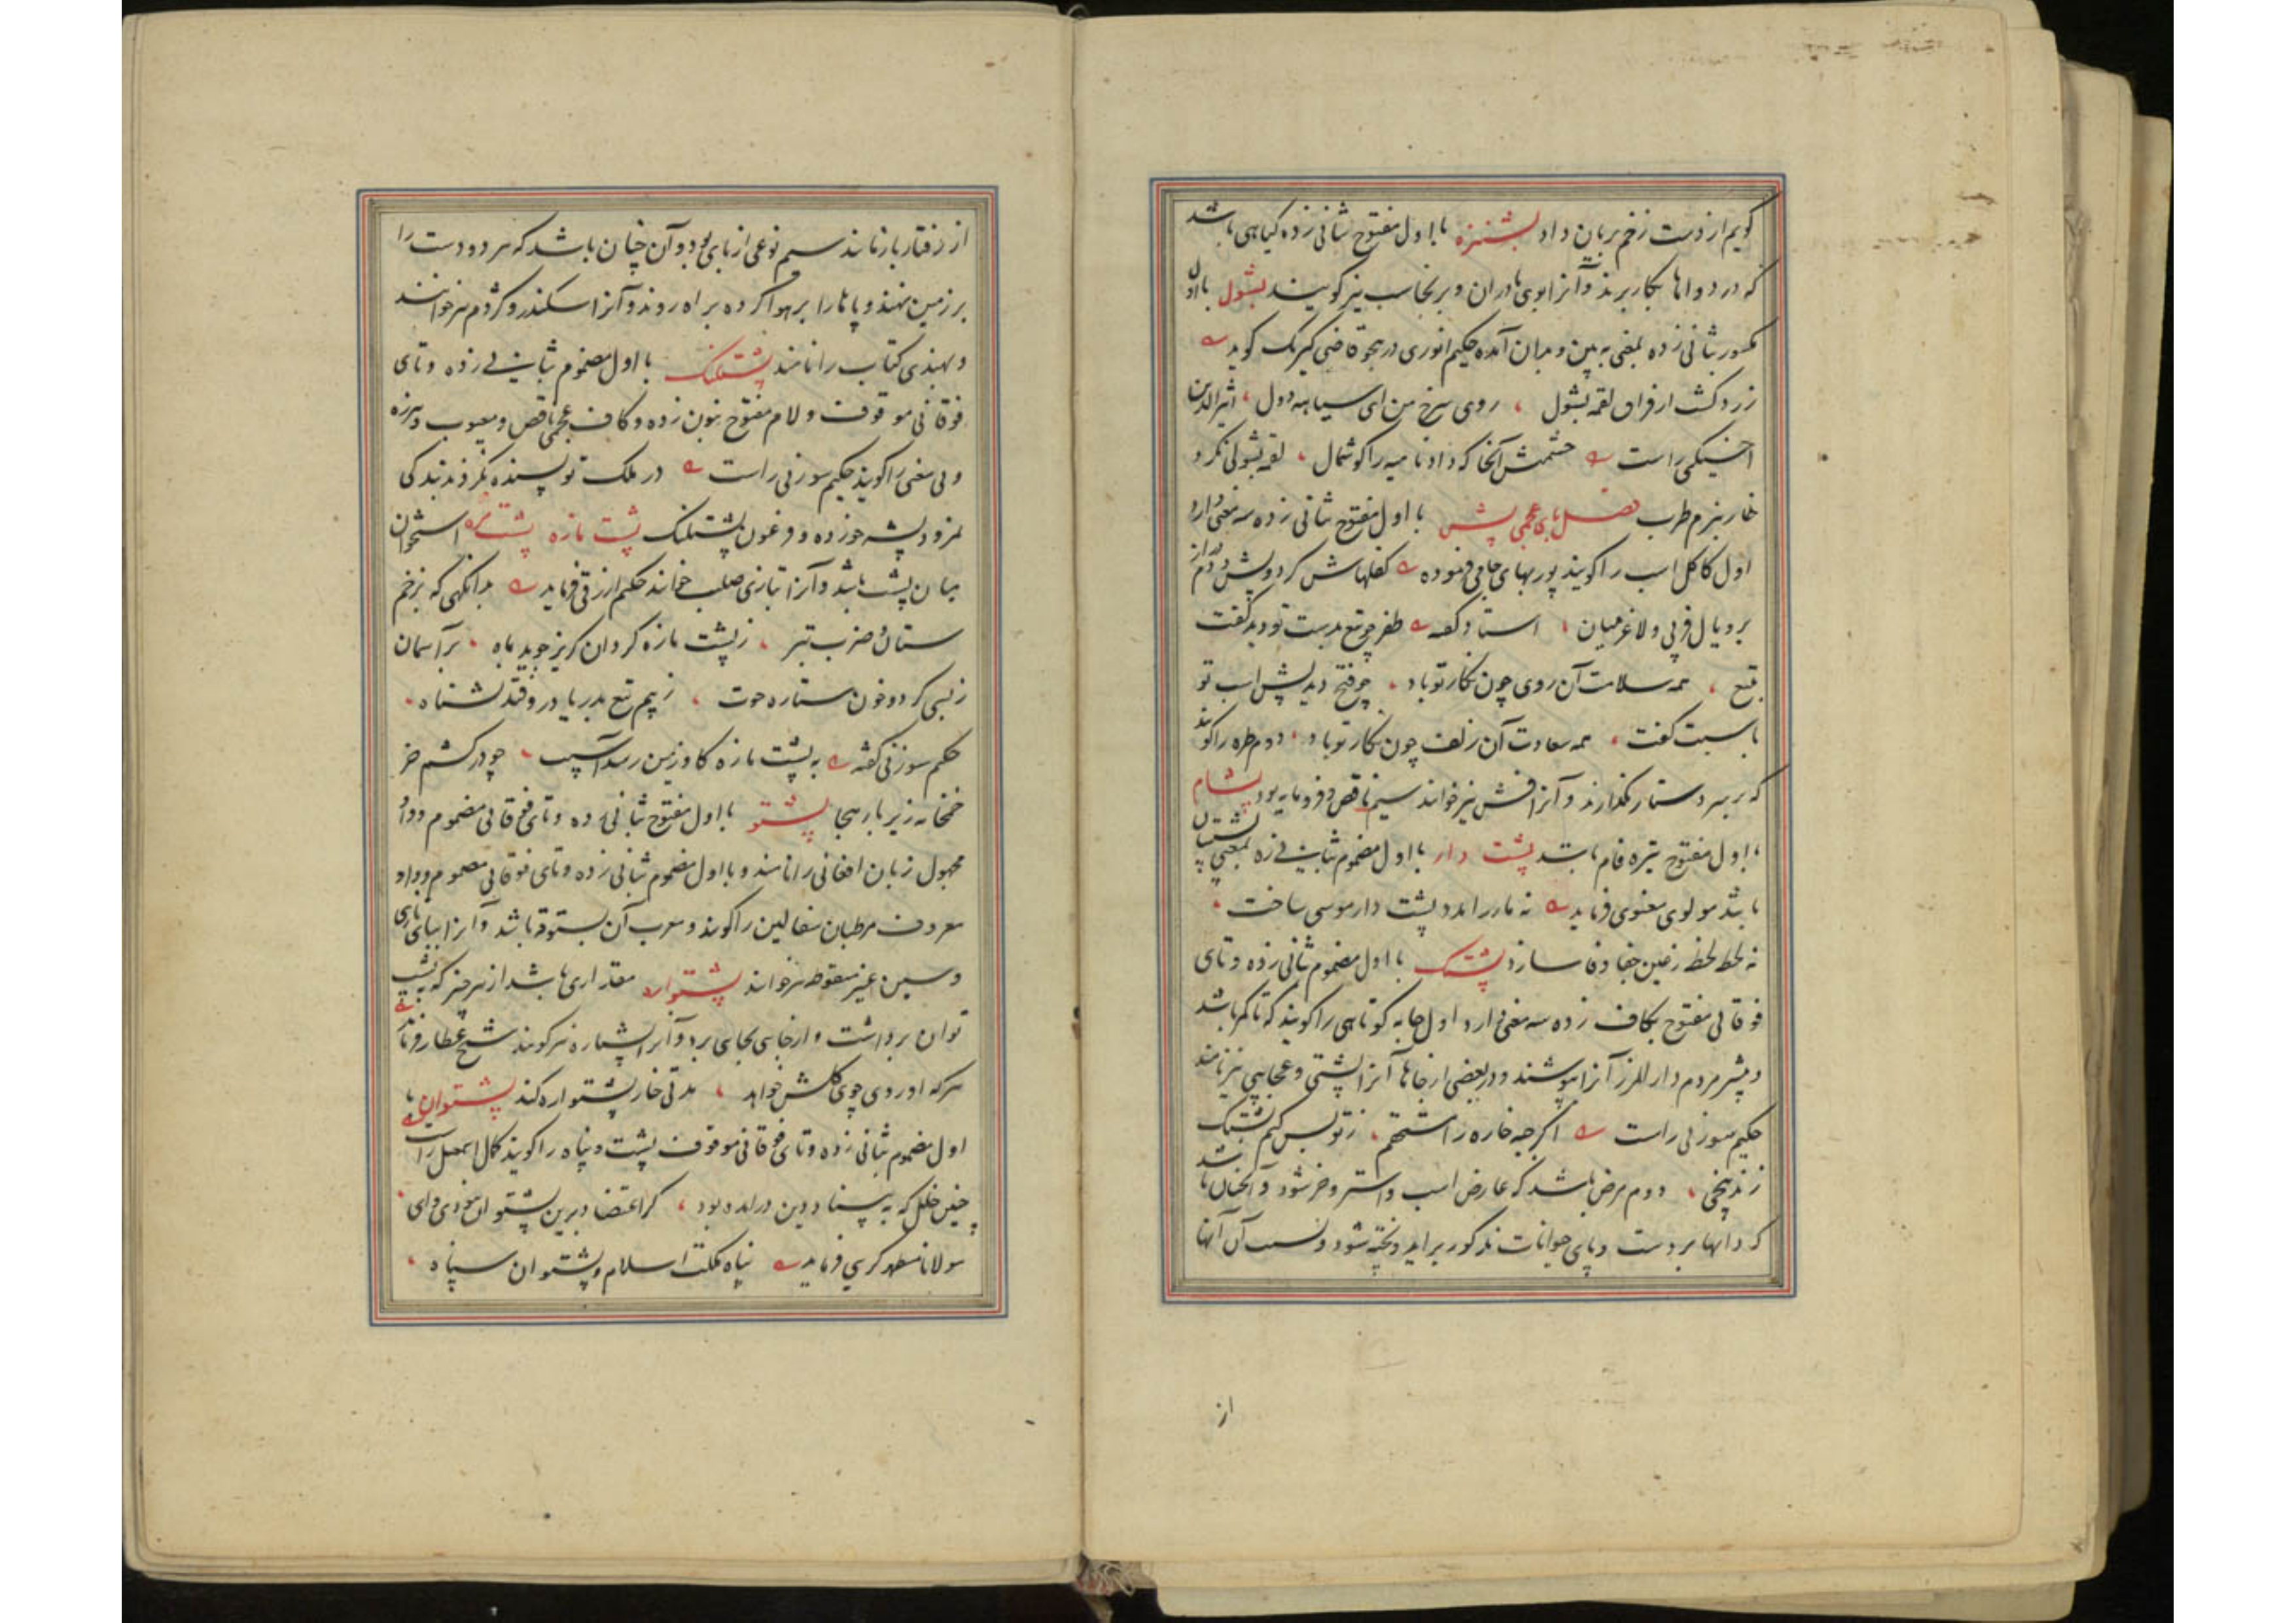 گویم از دست زخم بربان داد بشنزه با اول مفتوح بثانی زده گیاهی باشد
که در دواها بکار برند و آنرا بوی مادران و برنجاسب نیز گویند بشول با اول
مکسور بثانی زده بمعنی به بین و بدان آمده حکیم انوری در هجو قاضی کیرنک گوید
زرد گشت از فراق لقمه بشول روی سرخ من ای سیاهه دول اثیرالدین
اخسیکتی راست حشمتش آنجا که داد نامیه را گوشمال لقمه بشولی نکرد
خار ببزم طرب فصل بای عجمی پش با اول مفتوح بثانی زده سه معنی دارد
اول کاکل اسب را گویند پوربهای جامی فرموده کفلهاش گرد و پش و دم دراز
بر و یال فربی و لاغر میان استاد گفته ظفر چو تیغ بدست تو دید گفت
بتیغ همه سلامت آن روی چون نگار تو باد چو فتح دید پش اسب تو
باسبت گفت همه سعادت آن زلف چون نگار تو باد دوم طره را گویند
که بر سر دستار گذارند و آنرا فش نیز خوانند سیم ناقص و فرومایه بود پشام
با اول مفتوح تیره فام باشد پشت دار با اول مضموم بثانی زده بمعنی پشتیبان
باشد مولوی معنوی فرماید نه مار را مدد و پشت دار موسی ساخت
نه لحظه لحظه ز عین جفا وفا سازد پشتک با اول مضموم بثانی زده و تای
فوقانی مفتوح بکاف زده سه معنی دارد اول جامه کوتاهی را گویند که تا کمر باشد
و بیشتر مردم دارالمرز آنرا بپوشند و در بعضی از جاها آنرا پشتی و عجایبی نیز نامند
حکیم سوزنی راست اگر چه خاره را استحقم ز تو بس کیم پشتک
زندنیجی دوم مرضی باشد که عارض اسب و استر و خر شود و آنچنان باشد
که دانها بر دست و پای حیوانات مذکور براید و پخته شود و بسبب آن آنها
از
از رفتار بازمانند سیم نوعی از بازی بود و آن چنان باشد که هر دو دست را
بر زمین نهند و پاها را بر هوا کرده براه روند و آنرا اسکندرو و کژدم نیز خوانند
و بهندی کتاب را نامند پشتلنگ با اول مضموم بثانی زده و تای
فوقانی موقوف و لام مفتوح بنون زده و کاف عجمی ناقص و معیوب و هرزه
و بی معنی را گویند حکیم سوزنی راست در ملک تو بسنده نکردند بندگی
نمرود پشه خورده و فرعون پشتلنگ پشت مازه پشت مزه استخوان
میان پشت باشد و آنرا بتازی صلب خوانند حکیم ازرقی فرماید بدانگهی که بزخم
سنان و ضرب تبر ز پشت مازه گردان گریز جوید باه بر آسمان
ز نسی گردد خون ستاره حوت ز بیم تیغ بدریا در وفتد بشناه
حکیم سوزنی گفته به پشت مازه گاو زمین رسد آسیب چو در کشم خر
خمخانه زیر بار هجا پشتو با اول مفتوح بثانی زده و تای فوقانی مضموم و واو
مجهول زبان افغانی را نامند و با اول مضموم بثانی زده و تای فوقانی مضموم و واو
معروف مرطبان سفالین را گویند و معرب آن بستوقه باشد و آنرا ببای تازی
و سین غیر منقوطه نیز خوانند پشتواره مقداری باشد از هر چیز که به پشت
توان برداشت و از جایی بجایی برد و آنرا پشتاره نیز گویند شیخ عطار فرماید
هر که او روی چو گلش خواهد مدتی خار پشتواره کند پشتوان با
اول مضموم بثانی زده و تای فوقانی موقوف پشت و پناه را گویند کمال اسمعیل راست
چنین خلل که به بنیاد دین درآمده بود گر اعتضاد برین پشتوان نبودی وای
مولانا مطهر کرهی فرماید پناه مملکت اسلام و پشتوان سپاه